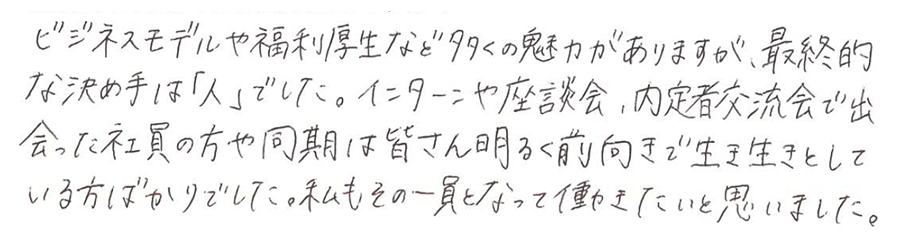 ビジネスモデルや福利厚生など多くの魅力がありますが、最終的
な決め手は「人」でした。インターンや座談会、内定者交流会で出
会った社員の方や同期は皆さん明るく前向きで生き生きとして
いる方ばかりでした。私もその一員となって働きたいと思いました。